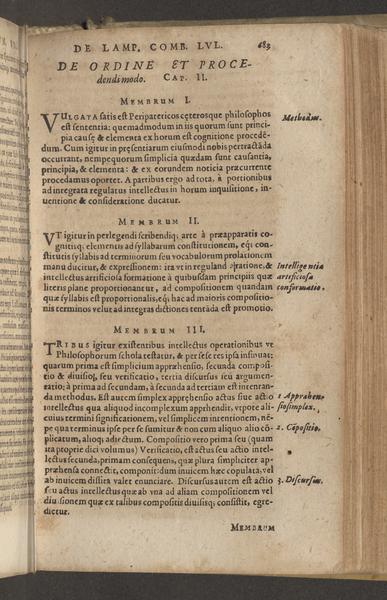 DE LAMP. COMB. LVL. 683
DE ORDINE ET PROCE-
dendi modo. CAP. II.
MEMBRUM I.
VULGATA satis est Peripateticos cęterosque philosophos
est sententia: quemadmodum in iis quorum sunt princi-
pia causę & elementa ex horum est cognitione procedē-
dum. Cum igitur in pręsentiarum eiusmodi nobis pertractāda
occurrant, nempe quorum simplicia quædam sunt causantia,
principia, & elementa: & ex eorundem noticia præcurrente
procedamus oportet. A partibus ergo ad tota, à portionibus
ad integra regulatus intellectus in horum inquisitione, in-
uentione & consideratione ducatur.
Methodus.
MEMBRUM II.
VT igitur in perlegendi scribendiq; arte à præapparatis co-
gnitisq; elementis ad syllabarum constitutionem, eq; con-
stitutis syllabis ad terminorum seu vocabulorum prolationem
manu ducitur, & expressionem: ita vt in regulandi ratione, &
intellectus artificiosa formatione à quibusdam principiis quæ
literis plane proportionantur, ad compositionem quandam
quæ syllabis est proportionalis, eq; hac ad maioris compositio-
nis terminos velut ad integras dictiones tentāda est promotio.
Intelligentia
artificiosa
conformatio.
MEMBRUM III.
TRIBUS igitur existentibus intellectus operationibus vt
Philosophorum schola testatur, & per se se res ipsa insinuat;
quarum prima est simplicium apprehensio, secunda composi-
tio & diuisio, seu verificatio, tertia discursus seu argumen-
tatio; à prima ad secundam, à secunda ad tertiam est intentan-
da methodus. Est autem simplex apprehensio actus siue actio
intellectus qua aliquod incomplexum apprehendit, vtpote ali-
cuius termini significationem, vel simplicem intentionem, nē-
pe qua terminus ipse per se sumitur & non cum aliquo alio cō-
plicatum, alioq; adiectum. Compositio vero prima seu (quam
ita proprie dici volumus) Verificatio, est actus seu actio intel-
lectus secunda, primam consequens, quæ plura simpliciter ap-
præhensa connectit, componitdum inuicem hæc copulat, vel
ab inuicem distita valet enunciare. Discursus autem est actio
seu actus intellectus quæ ab vna ad aliam compositionem vel
diuisionem quæ ex talibus compositis diuisisq; consistit, egre-
dietur.
1. Apprehen-
sio simplex.
2. Cōpositio.
3. Discursus.
MEMBRUM